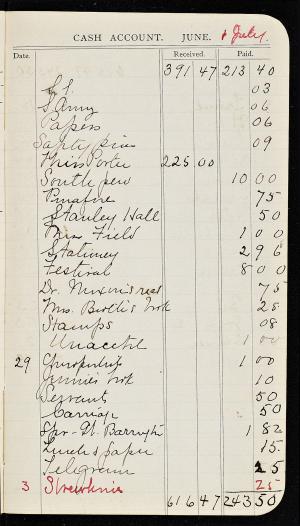 CASH ACCOUNT. JUNE. & July.
Date. Received. Paid.
391 47 213 40
03
S. Army 06
Papers 06
Safty pins 09
225 00
South pew 10 00
Pinafore 75
Stanley Hall 50
Mrs. Field 1 00
Stationey 2 96
Festival 8 00
Dr. Nixon's 75
Mrs. 25
Stamps 08
1 00
29 Chiropodist 1 00
Jennie's 10
Servant 50
Carriage 50
1 82
Lunch & paper 15
Telegram 25
3 Strawberries 25
616 47 243 50